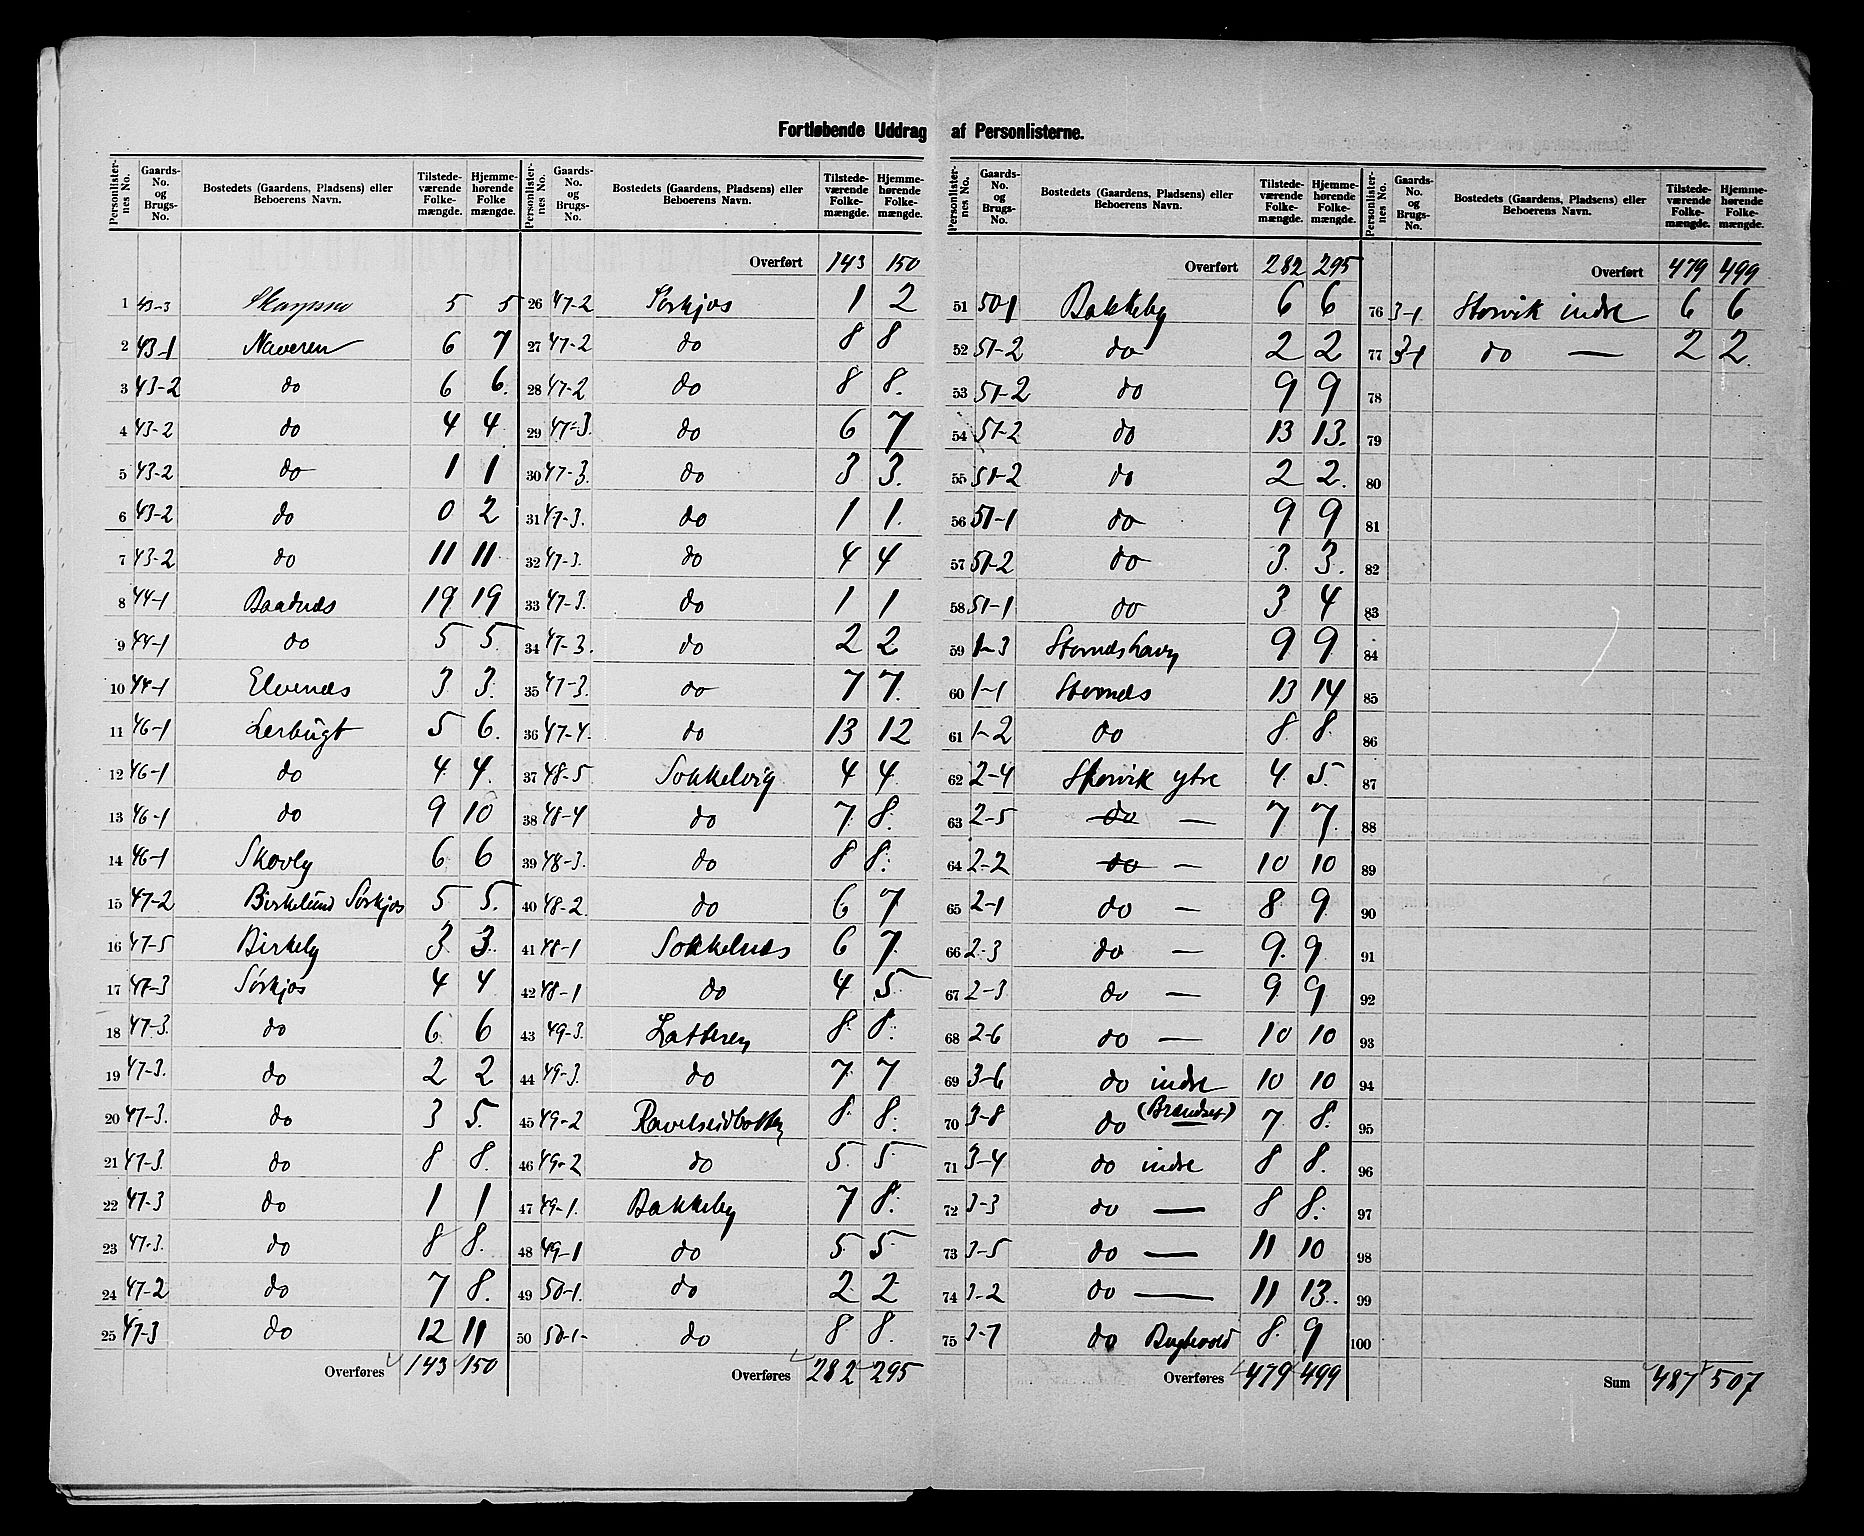 Fortløbende Uddrag af Personlisterne.
Personlister-nes No. Gaards-No. og Brugs-No. Bostedets (Gaardens, Pladsens) eller Beboerens Navn. Tilstede-værende Folke-mængde. Hjemme-hørende Folke mængde.
1 43-3 5 5
2 43-1 Naveren 6 7
3 43-2 do 6 6.
4 43-2 do 4 4.
5 43-2 do 1 1
6 43-2 do 0 2
7 43-2 do 11 11.
8 44-1 Baadnæs 19 19
9 44-1 do 5 5.
10 44-1 Elvenæs 3 3.
11 46-1 Lerbugt 5 6.
12 46-1 do 4 4.
13 46-1 do 9 10
14 46-1 Skovly 6 6
15 47-2 Birkelund Sørkjos 5 5.
16 47-5 Birkely 3 3.
17 47-3 Sørkjos 4 4
18 47-3. do 6 6
19 47-3. do 2 2
20 47-3. do 3 5.
21 47-3. do 8 8.
22 47-3 do 1 1
23 47-3. do 8 8.
24 47-2 do 7 8.
25 47-3 do 12 11
Overføres 143 150
Personlister-nes No. Gaards-No. og Brugs-No. Bostedets (Gaardens, Pladsens) eller Beboerens Navn. Tilstede-værende Folke-mængde. Hjemme-hørende Folke-mængde.
Overført 143 150
26 47-2 Sørkjos 1 2
27 47-2 do 8 8
28 47-2 do 8 8.
29 47-3. do 6 7
30 47-3. do 3 3.
31 47-3. do 1 1.
32 47-3. do 4 4
33 47-3. do 1 1
34 47-3. do 2 2
35 47-3. do 7 7.
36 47-4. do 13 12
37 48-5 Sokkelvig 4 4
38 48-4 do 7 8.
39 48-3. do 8 8.
40 48-2. do 6 7
41 48-1 Sokkelnæs 6 7.
42 48-1 do 4 5
43 49-3. Latteren 8 8.
44 49-3. do 7 7
45 49-2 Ravelseidbotten 8 8.
46 49-2 do 5 5
47 49-1. Bakkeby 7 8.
48 49-1 do 5 5
49 50-1. do 2 2
50 50-1- do 8 8.
Overføres 282 295
Personlister-nes No. Gaards-No. og Brugs-No. Bostedets (Gaardens, Pladsens) eller Beboerens Navn. Tilstede-værende Folke-mængde. Hjemme-hørende Folke-mængde.
Overført 282 295
51 50-1 Bakkeby 6 6
52 51-2 do 2 2
53 51-2 do 9 9
54 51-2 do 13 13.
55 51-2 do 2 2.
56 51-1 do 9 9
57 51-2 do 3 3.
58 51-1 do 3 4
59 1-3 Stornæshavn 9 9
60 1-1 Stornæs 13 14
61 1-2 do 8 8.
62 2-4 Storvik ytre 4 5
63 2-5 do — 7 7.
64 2-2 do — 10 10
65 2-1 do — 8 9.
66 2-3 do — 9. 9.
67 2-3 do — 9 9
68 2-6 do — 10 10
69 3-6 do indre 10 10
70 3-8 do (Brændset) 7 8.
71 3-4 do indre 8 8.
72 3-3 do — 8 8.
73 3-5 do — 11 10
74 3-2 do — 11 13.
75 3-7 do 8. 9
Overføres 479 499
Personlister-nes No. Gaards-No. og Brugs-No. Bostedets (Gaardens, Pladsens) eller Beboerens Navn. Tilstede-værende Folke-mængde. Hjemme-hørende Folke-mængde.
Overført 479 499
76 3-1 Storvik indre 6 6
77 3-1 do — 2 2.
78
79
80
81
82
83
84
85
86
87
88
89
90
91
92
93
94
95
96
97
98
99
100
Sum 487 507